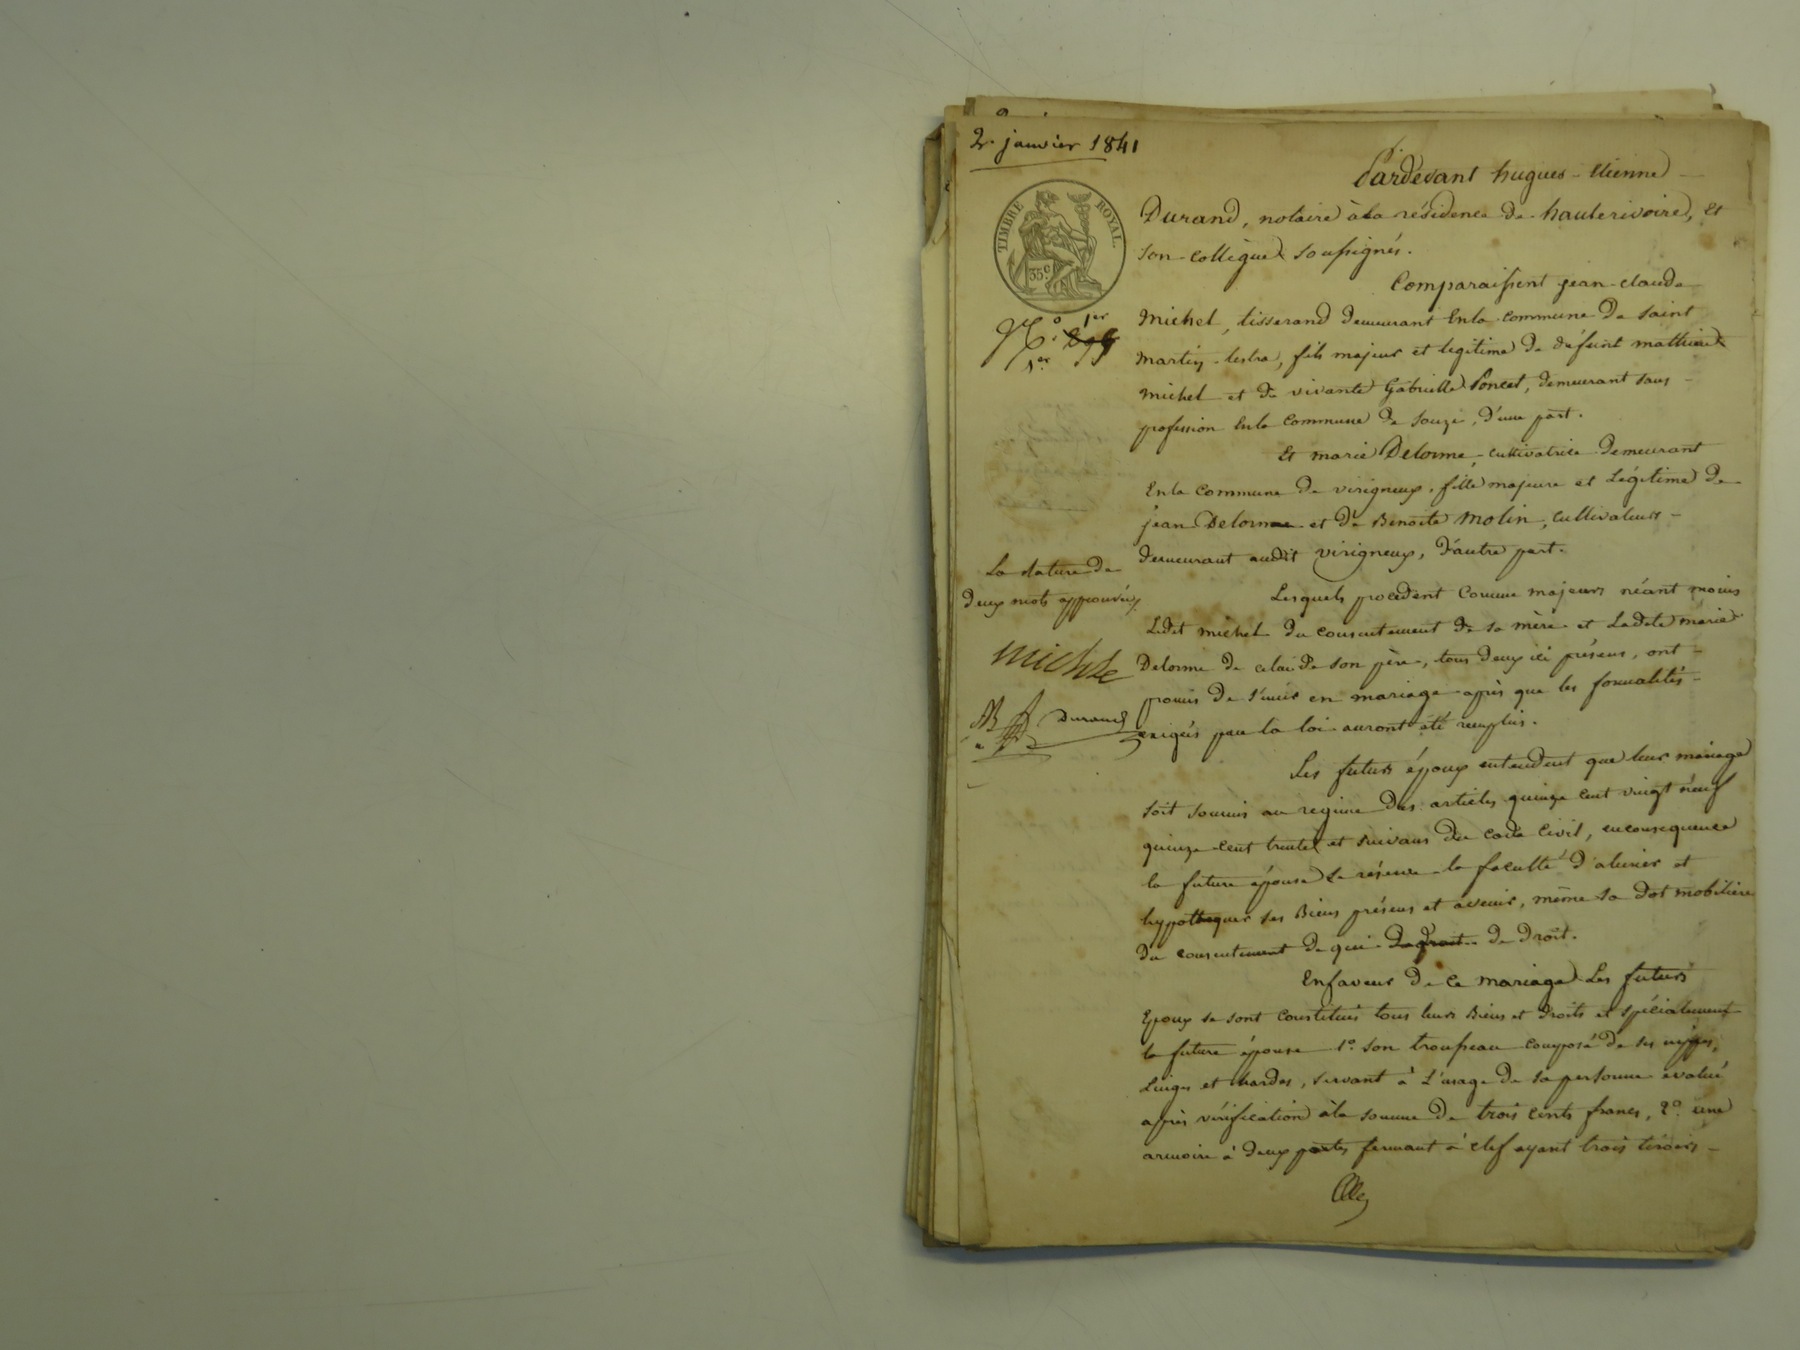 2. janvier 1841
TIMBRE ROYAL.
35c.
No. 1er
1er
Pardevant hugues-Etienne
Durand, notaire à la résidence de hauterivoire, Et
son collègue soussignés.
Comparaissent jean-claude
Michel, tisserand demeurant Enla commune De Saint
Martin-lestra, fils majeur et legitime De défunt mathieu
michel et De vivante Gabrielle Poncet, demeurant sans
profession Enla Commune De Souzi, D'une part.
Et marie Delorme, cultivatrice Demeurant
Enla Commune De virigneux, fille majeure et Légitime De
jean Delorme et De Benoite Molin, cultivateurs
Demeurant audit virigneux, D'autre part.
Lesquels procedent Comme majeurs néant moins
Ledit michel du consentement De sa mère et Ladite marie
Delorme De celui De son père, tous Deux ici présens, ont
promis De s'unir en mariage après que les formalités
exigées par la loi auront été remplies.
Les futurs époux entendent que leur mariage
soit soumis au regime Des articles quinze cent vingt neuf
quinze cent trente et suivans Du code Civil, enconsequence
la future épouse Se réserve la faculté D'aliener et
hypothequer ses Biens présens et avenir, même sa Dot mobilière
Du consentement De qui De Droit.
Enfaveur De Ce mariage Les futurs
Epoux se sont Constitués tous leurs Biens et Droits et spécialement
la future épouse 1o. Son trousseau composé De ses nippes,
Linges et hardes, servant à L'usage De sa personne évalué
après vérification àla somme De trois cents francs, 2o. une
armoire à Deux portes fermant à clef ayant trois tiroirs
La rature De
Deux mots approuvée
Michel
Durand